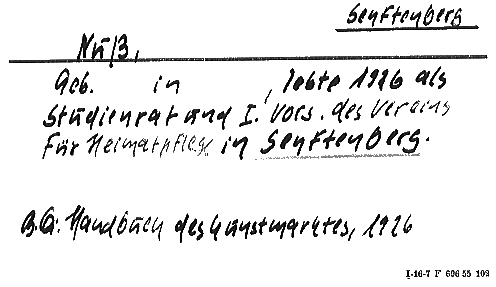 Senftenberg
Nuß,
Geb. in , lebte 1926 als
Studienrat und I. Vors. des Vereins
für Heimatpflege in Senftenberg.
B.Q: Handbuch des Kunstmarktes, 1926
I-16-7 F 606 55 109